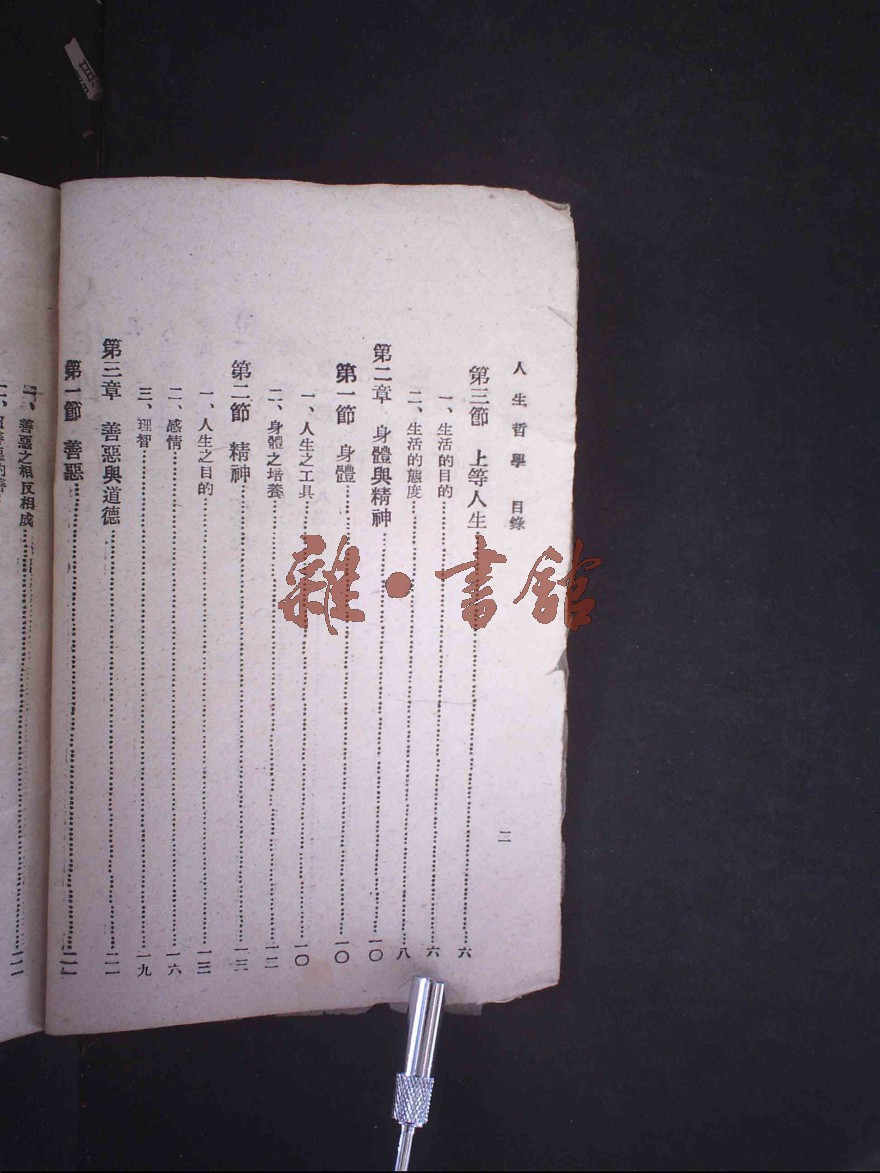 人生哲學 目錄
二
第三節 上等人生……六
一、生活的目的……六
二、生活的態度……八
第二章 身體與精神……一〇
第一節 身體……一〇
一、人生之工具……一〇
二、身體之培養……一二
第二節 精神……一三
一、人生之目的……一三
二、感情……一六
三、理智……一九
第三章 善惡與道德……二一
第一節 善惡……二一
一、善惡之相反相成……二一
雜·書館